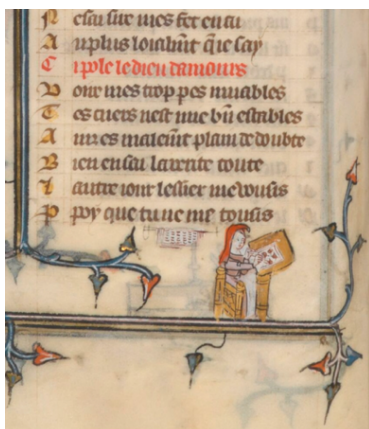 A u plus loialmt que say
C i pole le dieu damours
mes trop pes muiables
T es cuers nest mie bn estables
A malemt plain de doubte
B ien en sai la verite toute
L autre iour lessier me vousis
P poy que tu ne me tousis